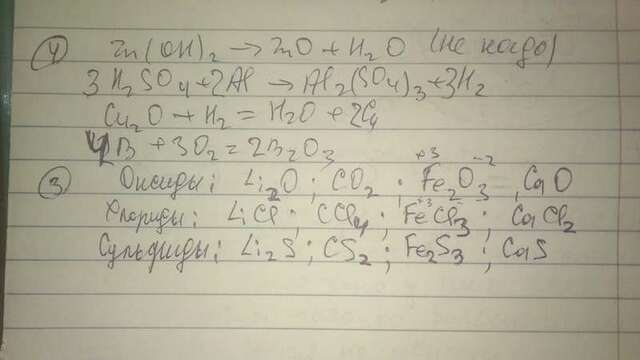 ④ Zn(OH)₂ → ZnO + H₂O (не надо)
3H₂SO₄ + 2Al → Al₂(SO₄)₃ + 3H₂
Cu₂O + H₂ = H₂O + 2Cu
4B + 3O₂ = 2B₂O₃
③ Оксиды: Li₂O; CO₂; Fe₂⁺³O₃⁻²; CaO
Хлориды: LiCl; CCl₄; Fe⁺³Cl₃⁻; CaCl₂
Сульфиды: Li₂S; CS₂; Fe₂S₃; CaS